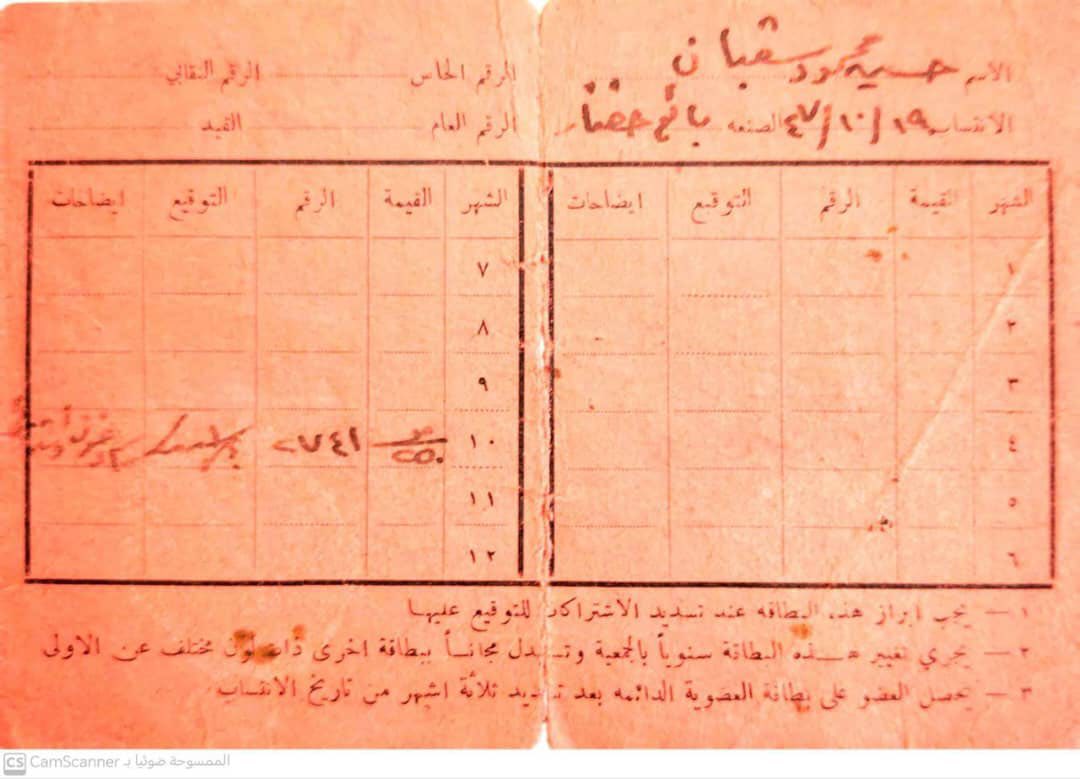 الاسم حسين محمود سقبان الرقم الخاص الرقم النقابي
الانتساب ١٩/١٠/٤٧ الصنعه بائع خضار الرقم العام القيد
الشهر القيمة الرقم التوقيع ايضاحات
١
٢
٣
٤
٥
٦
الشهر القيمة الرقم التوقيع ايضاحات
٧
٨
٩
١٠ ٢٧٤١
١١
١٢
١ — يجب ابراز هذه البطاقه عند تسديد الاشتراكات للتوقيع عليها
٢ — يجري تغيير هذه البطاقة سنوياً بالجمعية وتستبدل مجاناً ببطاقة اخرى ذات لون مختلف عن الاولى
٣ — يحصل العضو على بطاقة العضوية الدائمه بعد تسديد ثلاثة اشهر من تاريخ الانتساب
CS CamScanner الممسوحة ضوئيا بـ